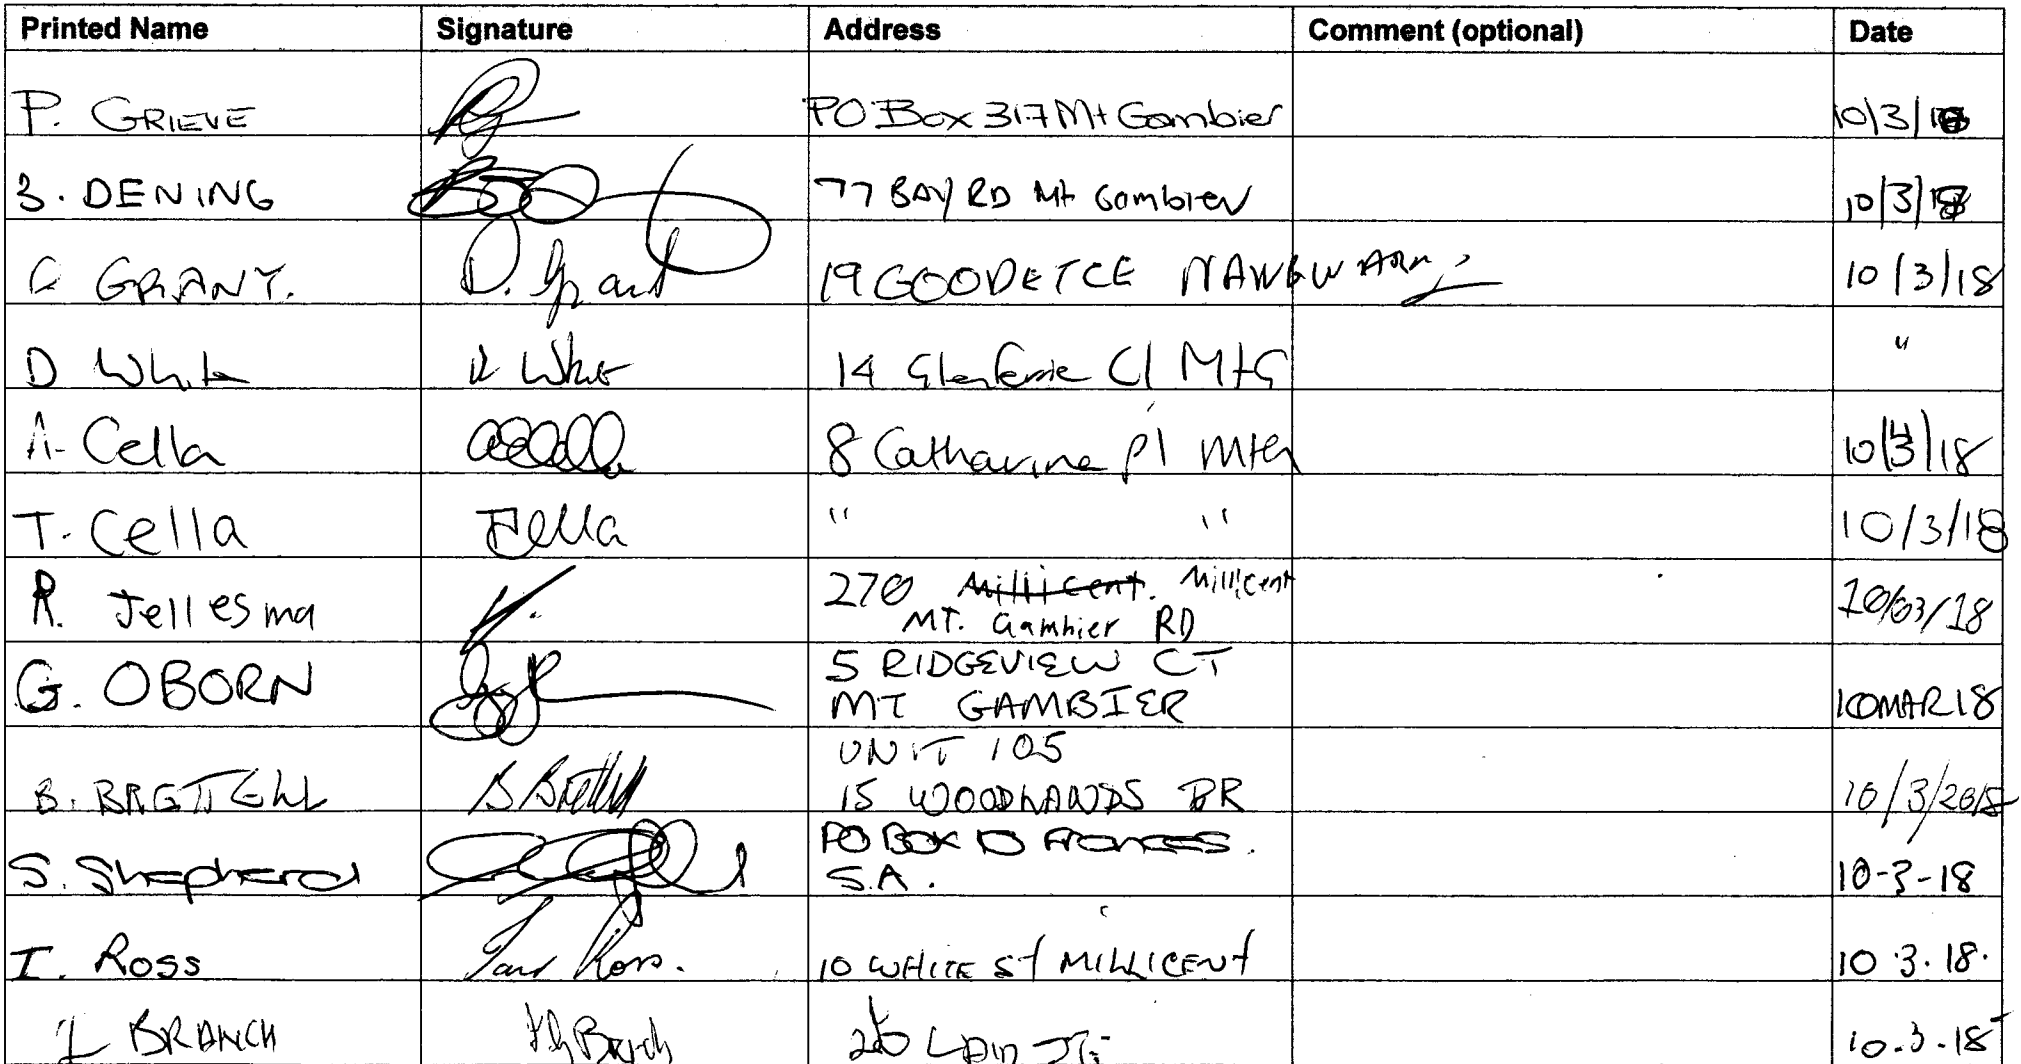 Printed Name Signature Address Comment (optional) Date
P. GRIEVE PO Box 317 Mt Gambier 10/3/18
B. DENING 77 BAY RD Mt Gambier 10/3/18
GRANT. D. Grant 19 10/3/18
D White D White 14 Glenferrie Cl Mt G "
A. Cella 8 Catharine Pl Mt G 10/3/18
T. Cella TCella " " 10/3/18
R. Jellesma 270 Millicent. Millicent
MT. Gambier RD 10/03/18
G. OBORN 5 RIDGEVIEW CT
MT GAMBIER 10MAR18
B. BRETTELL B Brettell UNIT 105
15 WOODLANDS DR 10/3/2018
S. Shepherd PO BOX 10 Frances.
S.A. 10-3-18
I. Ross Ian Ross. 10 WHITE St MILLICENT 10.3.18.
BRANCH Branch 10.3.18